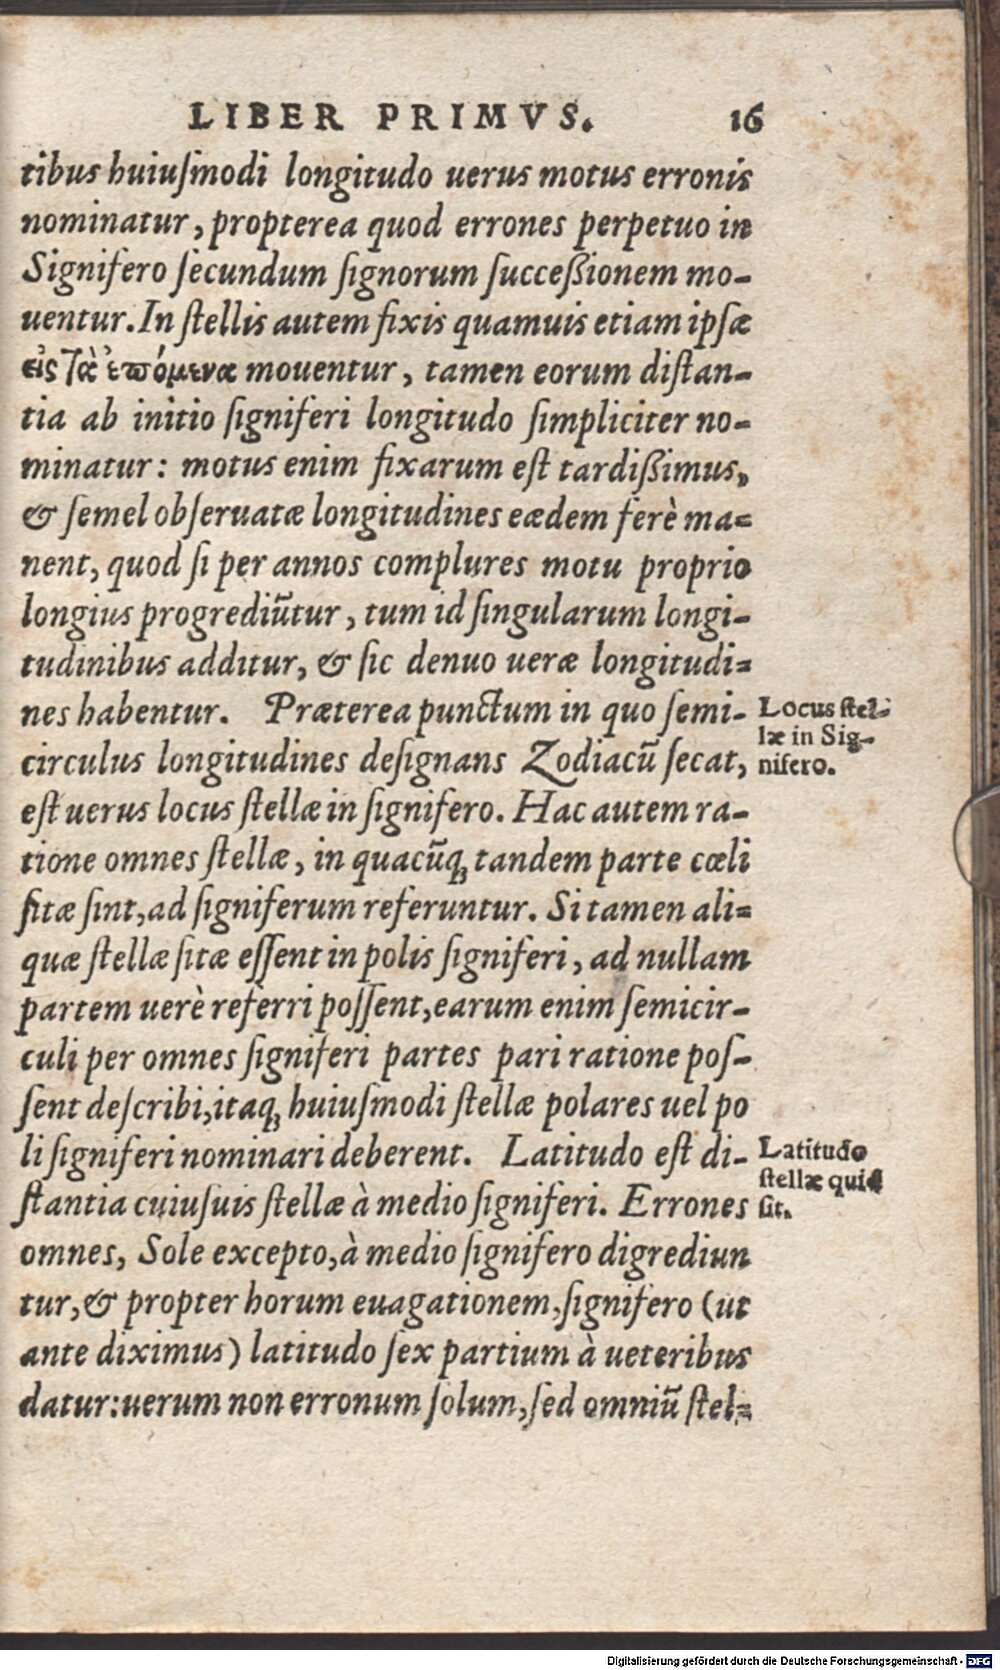 LIBER PRIMVS. 16
tibus huiuſmodi longitudo uerus motus erronis
nominatur, propterea quod errones perpetuo in
Signifero ſecundum ſignorum ſucceßionem mo-
uentur. In ſtellis autem fixis quamuis etiam ipſæ
εἰς τὰ ἑπόμενα mouentur, tamen eorum diſtan-
tia ab initio ſigniferi longitudo ſimpliciter no-
minatur: motus enim fixarum eſt tardißimus,
& ſemel obſeruatæ longitudines eædem ferè ma-
nent, quod ſi per annos complures motu proprio
longius progrediũtur, tum id ſingularum longi-
tudinibus additur, & ſic denuo ueræ longitudi-
nes habentur. Præterea punctum in quo ſemi-
circulus longitudines deſignans Zodiacũ ſecat,
eſt uerus locus ſtellæ in ſignifero. Hac autem ra-
tione omnes ſtellæ, in quacũq; tandem parte cœli
ſitæ ſint, ad ſigniferum referuntur. Si tamen ali-
quæ ſtellæ ſitæ eſſent in polis ſigniferi, ad nullam
partem uerè referri poſſent, earum enim ſemicir-
culi per omnes ſigniferi partes pari ratione poſ-
ſent deſcribi, itaq; huiuſmodi ſtellæ polares uel po
li ſigniferi nominari deberent. Latitudo eſt di-
ſtantia cuiuſuis ſtellæ à medio ſigniferi. Errones
omnes, Sole excepto, à medio ſignifero digrediun
tur, & propter horum euagationem, ſignifero (ut
ante diximus) latitudo ſex partium à ueteribus
datur: uerum non erronum ſolum, ſed omniũ ſtel-
Locus ſtel-
læ in Sig-
nifero.
Latitudo
ſtellæ quid
ſit.
Digitalisierung gefördert durch die Deutsche Forschungsgemeinschaft - DFG